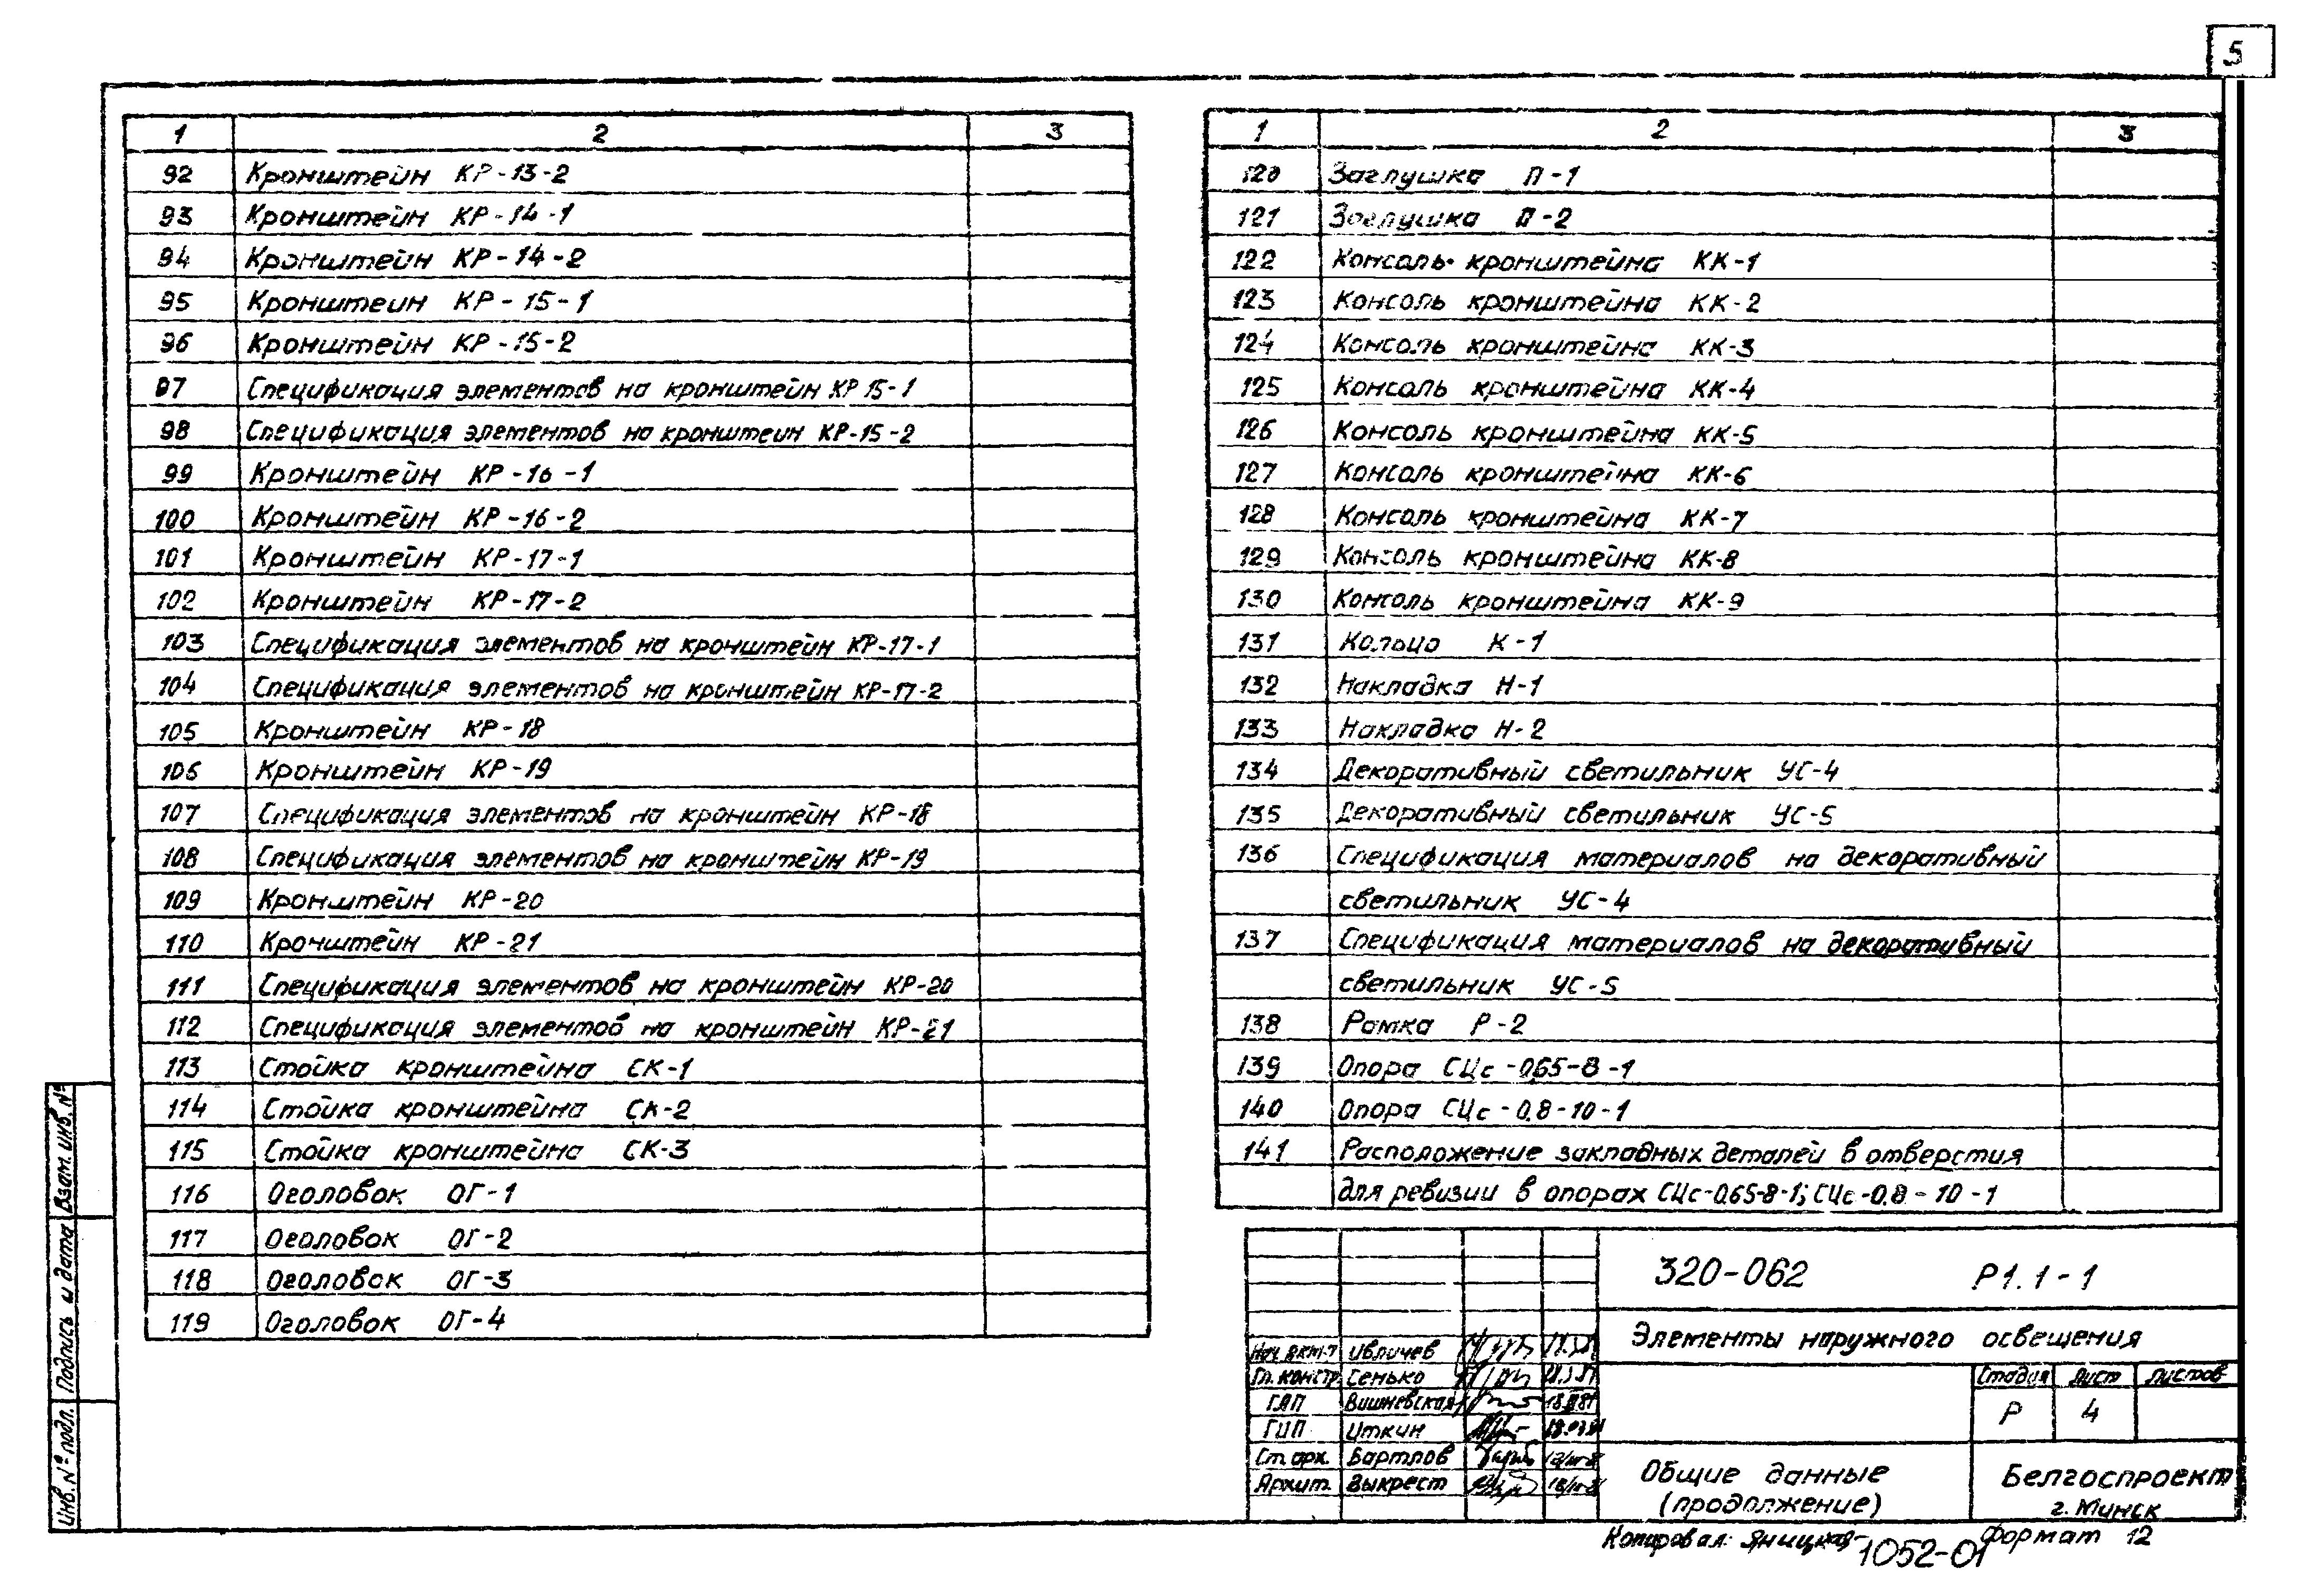 5
1 2 3
92 Кронштейн КР-13-2
93 Кронштейн КР-14-1
94 Кронштейн КР-14-2
95 Кронштеин КР-15-1
96 Кронштейн КР-15-2
97 Спецификация элементов на кронштейн КР 15-1
98 Спецификация элементов на кронштеин КР-15-2
99 Кронштейн КР-16-1
100 Кронштейн КР-16-2
101 Кронштейн КР-17-1
102 Кронштейн КР-17-2
103 Спецификация элементов на кронштейн КР-17-1
104 Спецификация элементов на кронштейн КР-17-2
105 Кронштейн КР-18
106 Кронштейн КР-19
107 Спецификация элементов на кронштейн КР-18
108 Спецификация элементов на кронштейн КР-19
109 Кронштейн КР-20
110 Кронштейн КР-21
111 Спецификация элементов на кронштейн КР-20
112 Спецификация элементов на кронштейн КР-21
113 Стойка кронштейна СК-1
114 Стойка кронштейна СК-2
115 Стойка кронштейна СК-3
116 Оголовок ОГ-1
117 Оголовок ОГ-2
118 Оголовок ОГ-3
119 Оголовок ОГ-4
1 2 3
120 Заглушка П-1
121 Заглушка П-2
122 Консоль кронштейна КК-1
123 Консоль кронштейна КК-2
124 Консоль кронштейна КК-3
125 Консоль кронштейна КК-4
126 Консоль кронштейна КК-5
127 Консоль кронштейна КК-6
128 Консоль кронштейна КК-7
129 Консоль кронштейна КК-8
130 Консоль кронштейна КК-9
131 Кольцо К-1
132 Накладка Н-1
133 Накладка Н-2
134 Декоративный светильник УС-4
135 Декоративный светильник УС-5
136 Спецификация материалов на декоративный
светильник УС-4
137 Спецификация материалов на декоративный
светильник УС-5
138 Рамка Р-2
139 Опора СЦс-0,65-8-1
140 Опора СЦс-0.8-10-1
141 Расположение закладных деталей в отверстия
для ревизии в опорах СЦс-0,65-8-1; СЦс-0.8-10-1
320-062 Р1.1-1
Элементы наружного освещения
Нач. Ивличев
Гл. констр. Сенько
ГАП Вишневская
ГИП Иткин
Ст. арх. Вартлов
Архит. Выкрест
Стадия Лист Листов
Р 4
Общие данные
(продолжение)
Белгоспроект
г. Минск
Копировал: Яницкая
1052-01
Формат 12
Взам. инв. №
Подпись и дата
Инв. № подл.